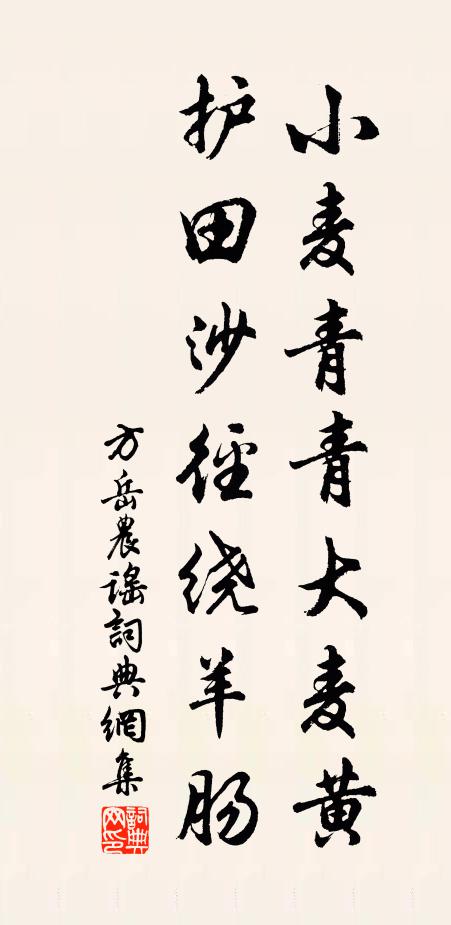 小麦青青大麦黄
护田沙径绕羊肠
方岳農谣詞典網集
詞典网印